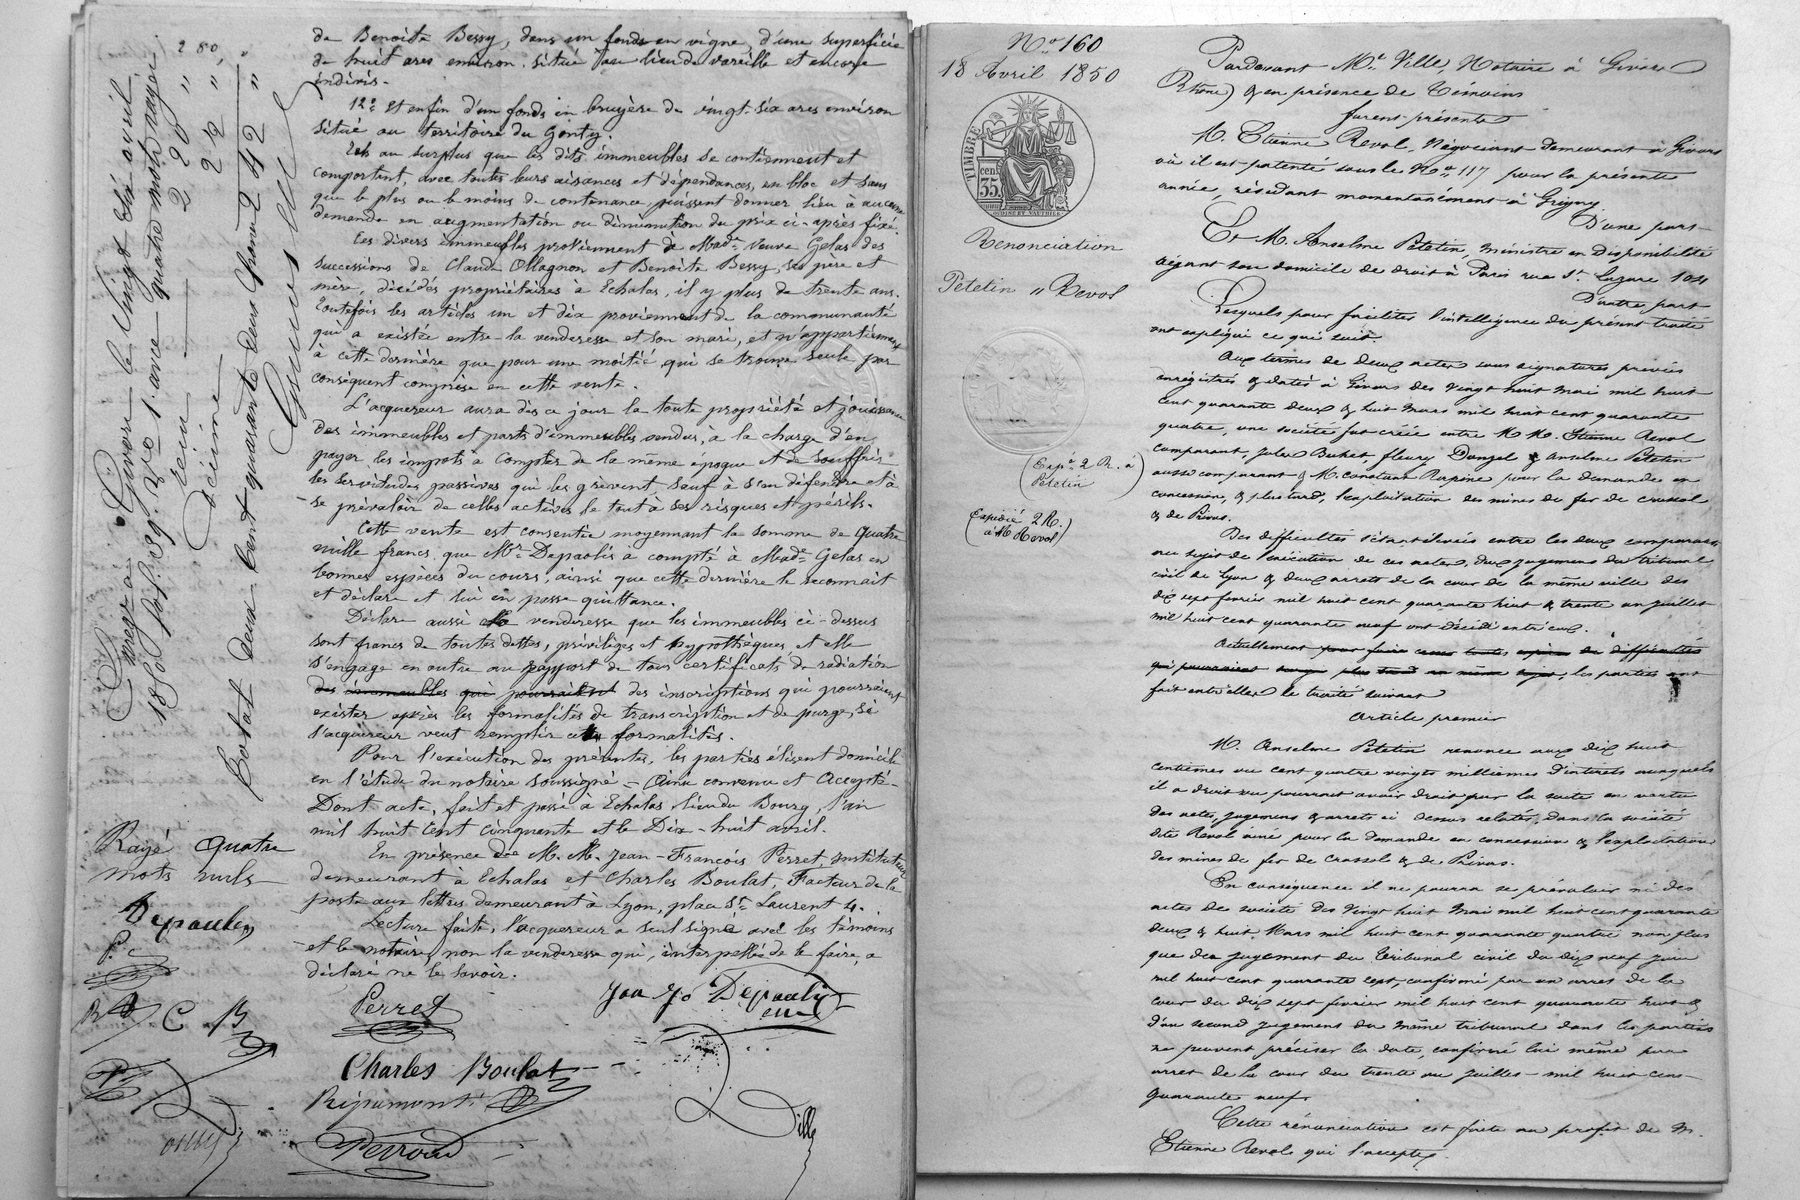 280,
de Benoite Bessy, dans un fonds en vigne, d'une superficie
de huit ares environ, situé au lieu de Vareille et encore
indivis.
12º Et enfin d'un fonds en bruyère de vingt-six ares environ
situé au territoire du Gonty.
au surplus que les dits immeubles se contiennent et
comportent, avec toutes leurs aisances et dépendances, en bloc et sans
que le plus ou le moins de contenance, puissent donner lieu à aucune
demande en augmentation ou diminution du prix ci-après fixé.
Les divers immeubles proviennent à Made veuve Gelas des
successions de Claude Ollagnon et Benoite Bessy, ses père et
mère, décédés propriétaires à Echalas, il y plus de trente ans.
Toutefois les articles un et dix proviennent de la communauté
qui a existée entre la venderesse et son mari, et n'appartiennent
à cette dernière que pour une moitié, qui se trouve seule par
conséquent comprise en cette vente.
L'acquereur aura dès ce jour la toute propriété et jouissance
des immeubles et parts d'immeubles vendus, à la charge d'en
payer les impots à compter de la même époque et de souffrir
les servitudes passives qui les grèvent sauf à s'en défendre et à
se prévaloir de celles actives le tout à ses risques et périls.
Cette vente est consentie moyennant la somme de quatre
mille francs, que Mr Depaolis a compté à Made Gelas en
bonnes espèces du cours, ainsi que cette dernière le reconnait
et déclare et lui en passe quittance.
Déclare aussi la venderesse que les immeubles ci-dessus
sont francs de toutes dettes, privilèges et hypothèques, et elle
s'engage en outre au rapport de tous certificats de radiation
des immeubles qui pourraient des inscriptions qui pourraient
exister après les formalités de transcription et de purge, si
l'acquéreur veut remplir ces formalités.
Pour l'exécution des présentes, les parties élisent domicile
en l'étude du notaire soussigné - Ainsi convenu et accepté -
Dont acte, fait et passé à Echalas, lieu du Bourg, l'an
mil huit cent cinquante et le Dix-huit avril.
En présence de M.M. Jean-François Perret, instituteur
demeurant à Echalas et Charles Boulat, Facteur de la
poste aux lettres demeurant à Lyon, place St Laurent 4.
Lecture faite, l'acquereur a seul signé avec les témoins
et le notaire, non la venderesse qui, interpellée de le faire, a
déclaré ne le savoir.
Enregré à Givors le Vingt six avril
1850 fol. 89. Vo 1. ance quatre mots rayés
reçu 220 "
Décime 22 "
Total deux cent quarante deux francs 242 "
Rayé quatre
mots nuls
Perret
Charles Boulat
Ripamonti
Perroud
Ville
Nº 160
18 Avril 1850
TIMBRE
35 cen
Renonciation
Petetin " Revol
(Expé 2 R. à
Petetin)
(Expédié 2 R.
à M Revol)
Pardevant Me Ville, Notaire à Givors
(Rhône) & en présence de Temoins
furent présents
M. Etienne Revol, Négociant demeurant à Givors
où il est patenté sous le No 117 pour la présente
année, résidant momentanément à Grigny.
D'une part
Et M. Anselme Petetin, Ministre en Disponibilité
ayant son domicile de droit à Paris rue St Lazare 104
D'autre part
Lesquels pour faciliter l'intelligence du présent traité
ont expliqué ce qui suit
Aux termes de deux actes sous signatures privées
enregistrés & datés à Givors des vingt huit mai mil huit
cent quarante deux & huit mars mil huit cent quarante
quatre, une société fut créée entre M M. Etienne Revol
comparant, Jules Buhet, fleury Donzel & Anselme Petetin
aussi comparant & M. constant Rapine pour la demande en
concession, & plus tard, l'exploitation des mines de fer de crussol
& de Privas.
Des difficultés s'étant élevées entre les deux comparans
au sujet de l'exécution de ces actes, deux jugemens du tribunal
civil de Lyon & deux arrets de la cour de la même ville des
dix sept fevrier mil huit cent quarante huit & trente un juillet
mil huit cent quarante neuf ont décidé entr'eux.
Actuellement pour faire cesser toutes difficultés
qui pourraient surgir plus tard au même sujet, les parties ont
fait entr'elles le traité suivant
Article premier
M. Anselme Petetin renonce aux dix huit
centiemes ou cent quatre vingts milliemes d'intérets auxquels
il a droit ou pourrait avoir droit par la suite en vertu
des actes, jugemens & arrets ci dessus relatés, dans la société
dite Revol ainé pour la demande en concession & l'exploitation
des mines de fer de crussol & de Privas.
En conséquence il ne pourra se prévaloir ni des
actes de société des vingt huit mai mil huit cent quarante
deux & huit Mars mil huit cent quarante quatre non plus
que des jugement du tribunal civil du dix neuf juin
mil huit cent quarante sept, confirmé par un arret de la
cour du dix sept fevrier mil huit cent quarante huit &
d'un second jugement du même tribunal dont les parties
ne peuvent préciser la date, confirmé lui même par
arret de la cour du trente un juillet mil huit cent
quarante neuf.
Cette rénonciation est faite au profit de M.
Etienne Revol qui l'accepte.